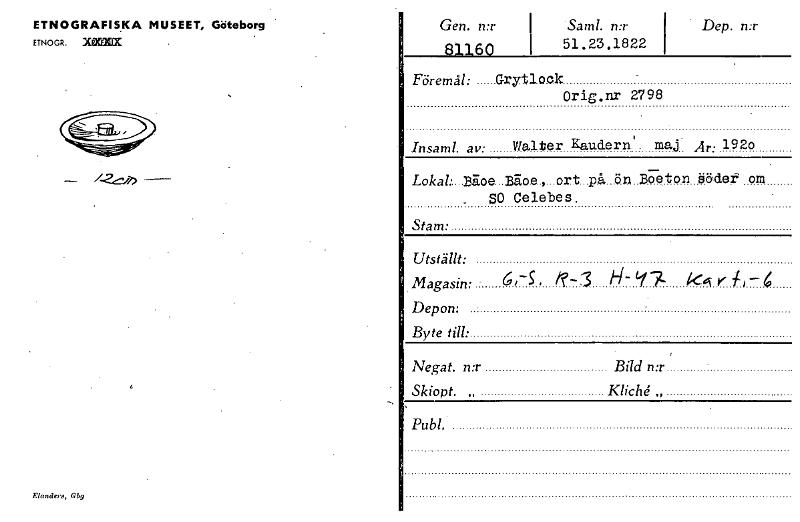 ETNOGRAFISKA MUSEET, Göteborg
ETNOGR.
— 12cm —
Elanders, Gbg
Gen. n:r Saml. n:r Dep. n:r
81160 51.23.1822
Föremål: Grytlock
Orig.nr 2798
Insaml. av: Walter Kaudern maj År: 1920
Lokal: Bāoe Bāoe, ort på ön Boeton söder om
SO Celebes.
Stam:
Utställt:
Magasin: G.-S. R-3 H-47 Kart.-6
Depon:
Byte till:
Negat. n:r Bild n:r
Skiopt. „ Kliché „
Publ.